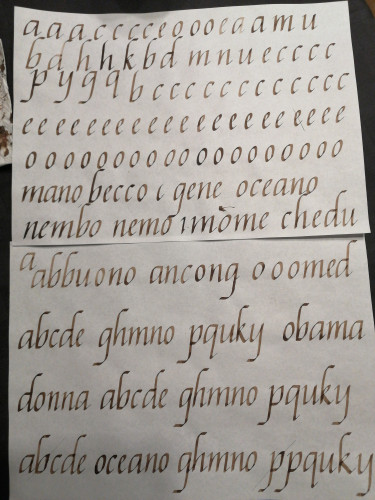 a a a c c c c e o o o e a a m u
b d h h k b d m n u e c c c c
p y g q b c c c c c c c c c c c c
e e e e e e e e e e e e e e e e e e e e
o o o o o o o o o o o o o o o o o o o o
mano becco i gene oceano
nembo nemo imome chedu
a abbuono ancong o o omed
abcde ghmno pquky obama
donna abcde ghmno pquky
abcde oceano ghmno ppquky